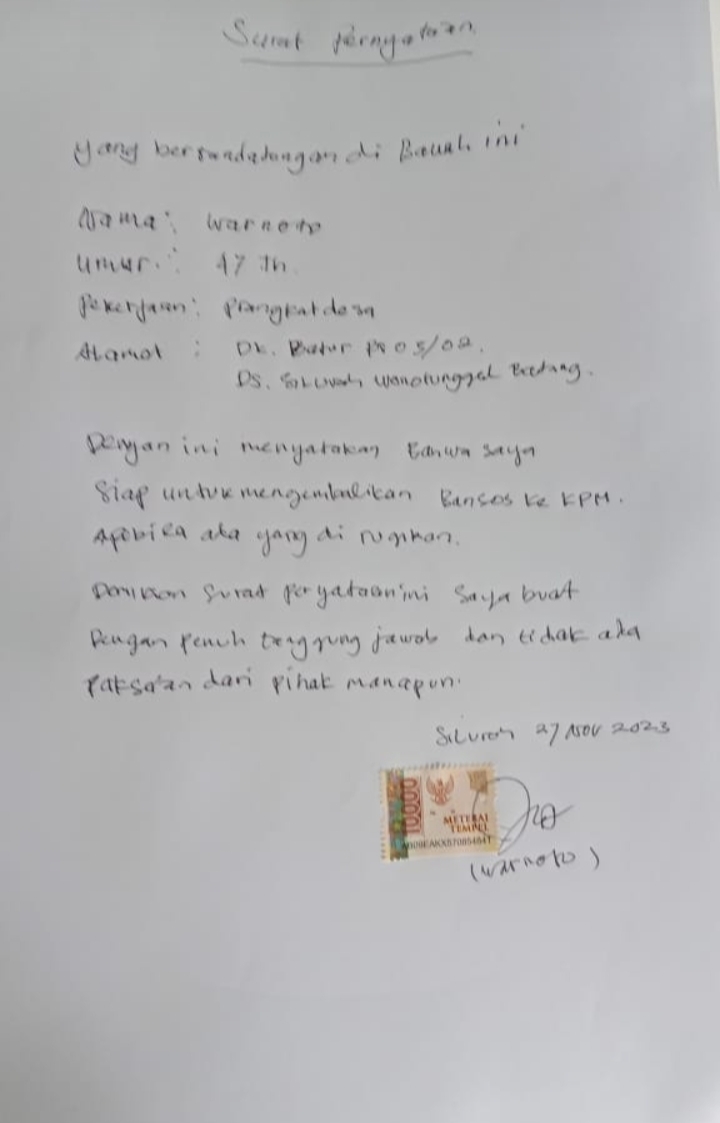 Surat pernyataan
yang bertandatangan di Bawah ini
Nama : Warnoto
Umur : 47 Th.
Pekerjaan : Prangkat desa
Alamat : Dk. Batur 05/02.
DS. Siluroh Wonotunggal Batang.
Dengan ini menyatakan Bahwa saya
Siap untuk mengembalikan Bansos ke KPM.
Apabila ada yang di rugikan.
Demikian Surat peryataan ini saya buat
Dengan penuh tanggung jawab dan tidak ada
paksa'an dari pihak manapun.
Siluroh 27 Nov 2023
10000
METERAI
TEMPEL
(Warnoto)